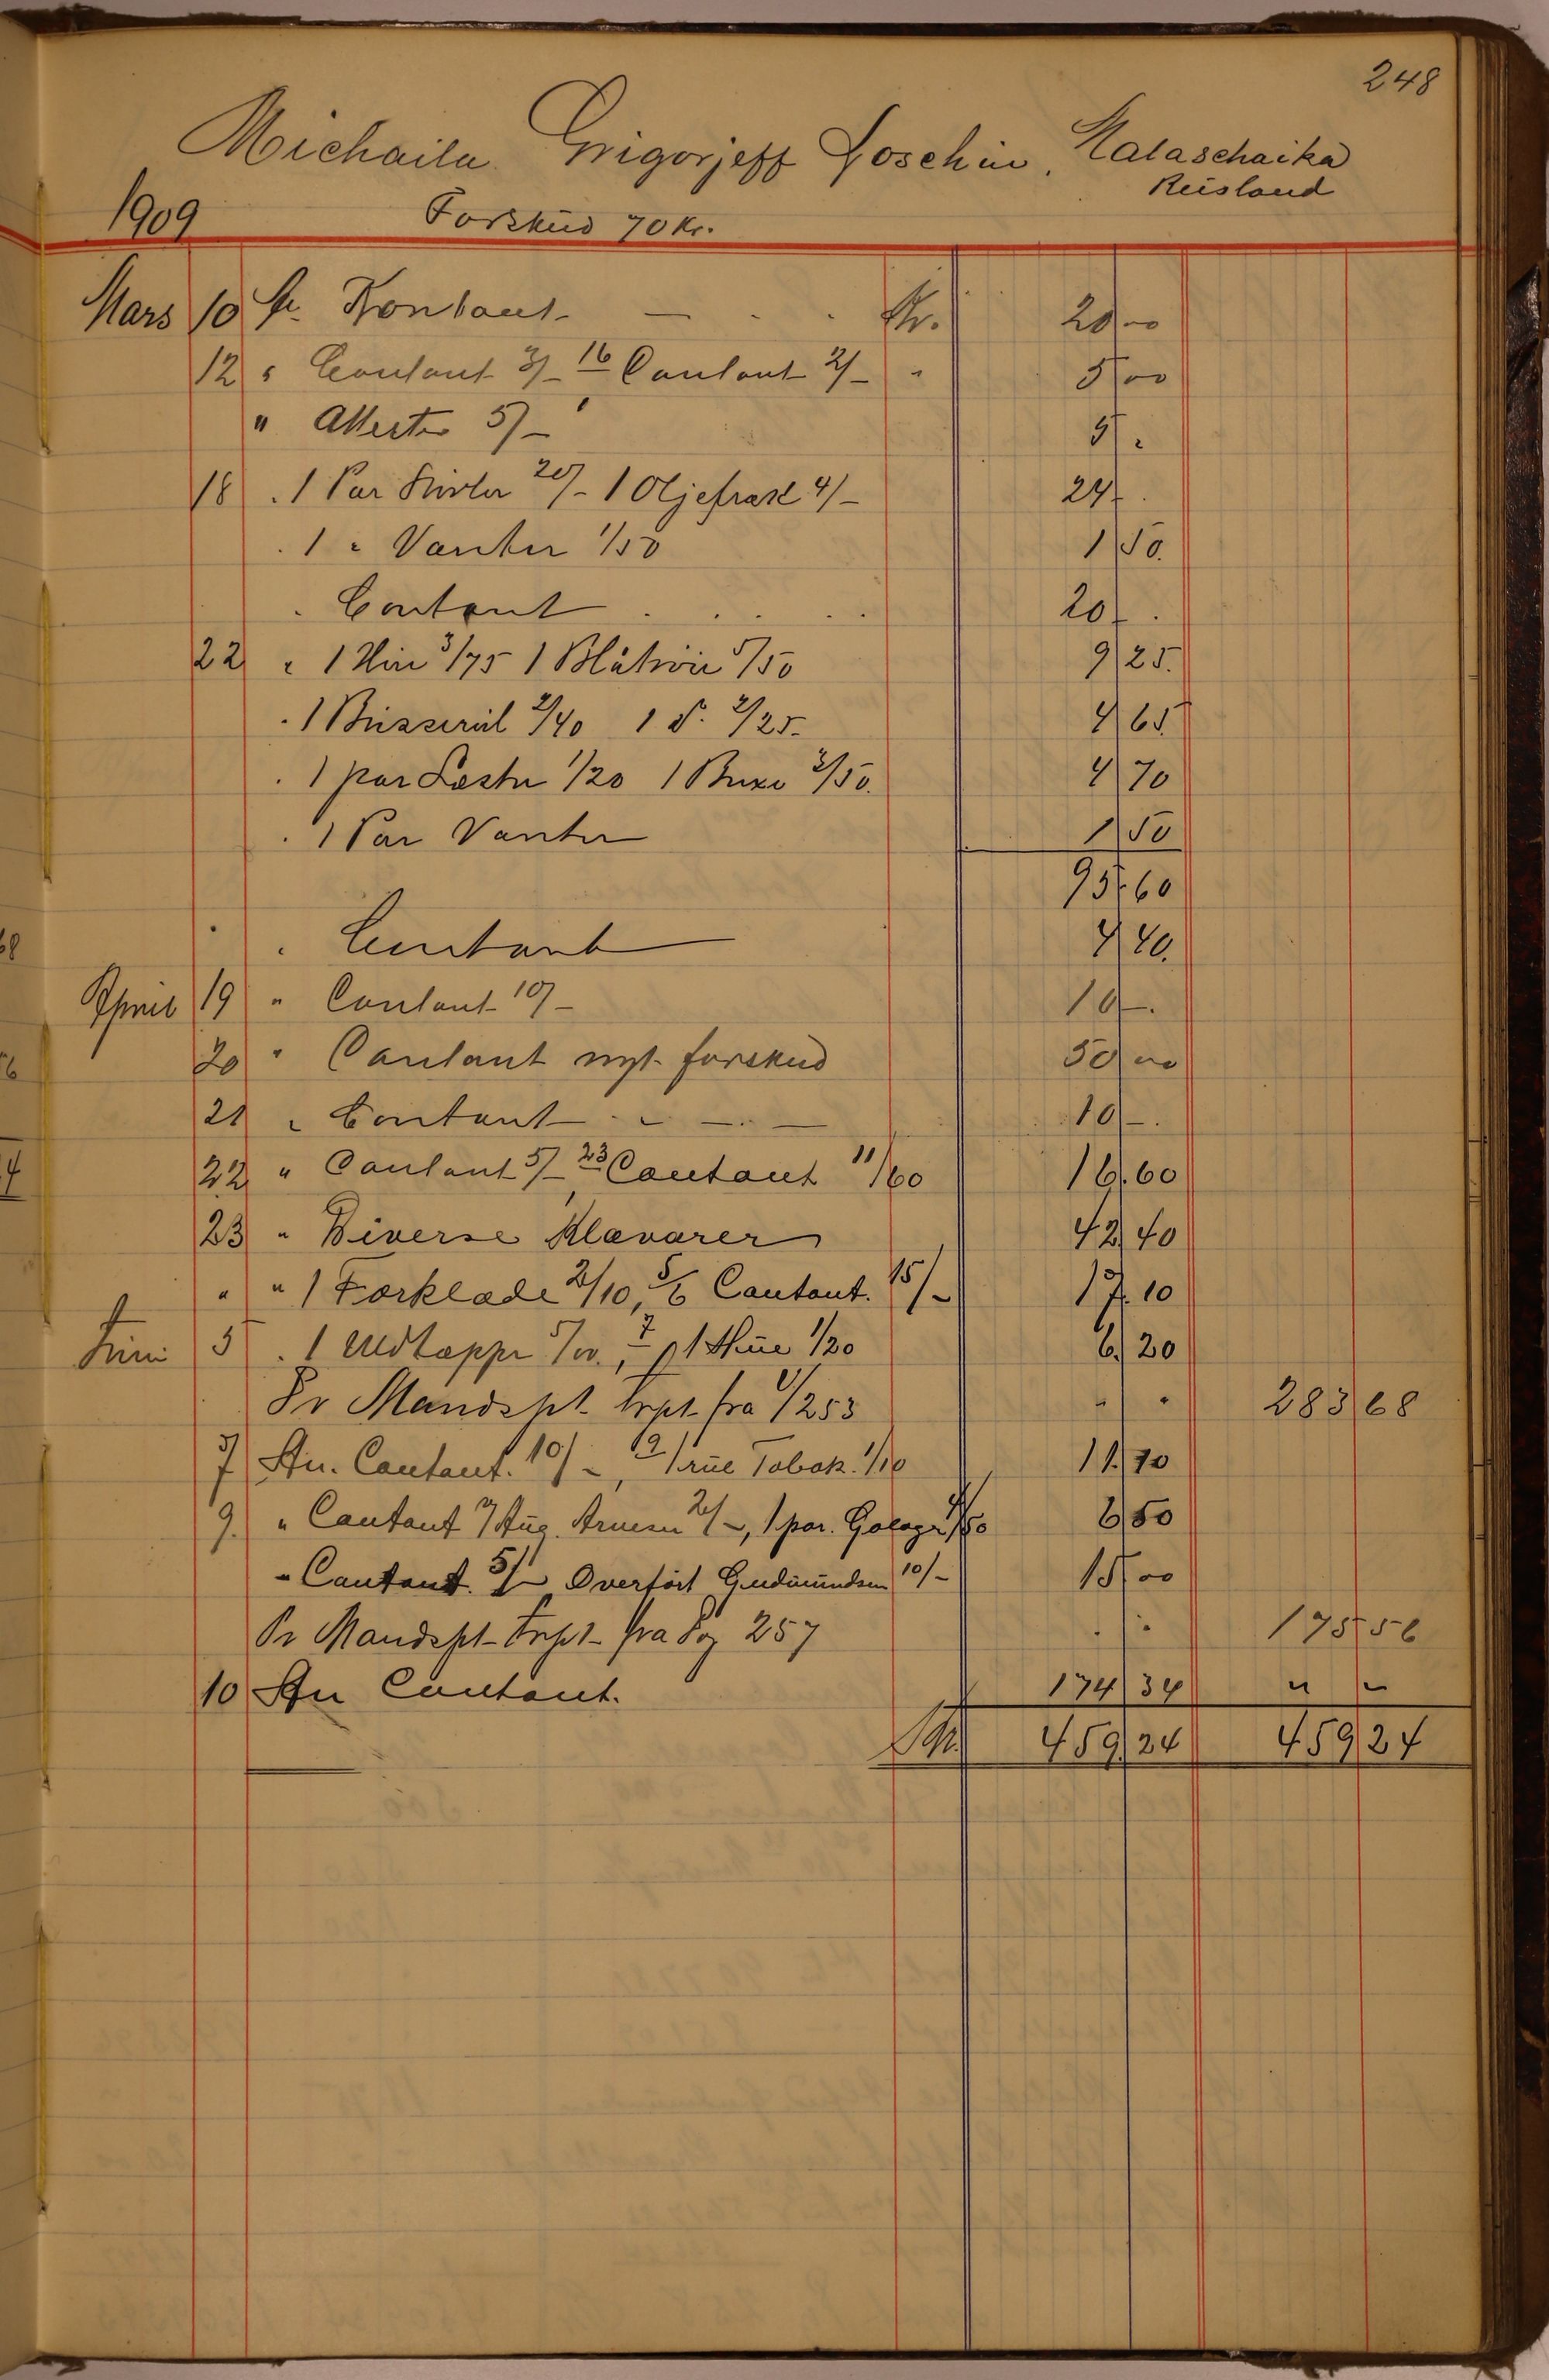 248
Michaila Grigorjeff Loschin, Malaschaika
Reisland
1909 Forskud 70 Kr.
Mars 10 Kontant - Kr. 20 00
12 " Contant 3/- 16 Contant 2/- " 5 00
" Attester 5/- 5 "
18 . 1 Par Støvler 20/- 1 Oljefrak 4/- 24 -
. 1 " Vanter 1/50 1 50.
. Contant 20 -
22 " 1 Hue 3/75 1 Blåtrøie 5/50 9 25.
. 1 Busserul 2/40 1 D. 2/25. 4 65
. 1 par Læster 1/20 1 Buxe 3/50. 4 70
. 1 Par Vanter 1 50
95 60
" . Contant 4 40.
April 19 " Contant 10/- 10 -.
20 " Contant nyt forskud 50 00
21 " Contant - - - 10 -.
22 " Contant 5/- 23 Contant 11/60 16.60
23 " Diverse Klævarer 42 40
" " 1 Forklæde 2/10, 5/6 Contant. 15/- 17.10
Juni 5 . 1 Uldtæppe 5/00, 7 1 Hue 1/20 6.20
Pr Mandskt. trpt. fra 1/253 " " 283 68
7 An. Contant. 10/-, 9 1 rul Tobak. 1/10 11.10
9. " Contant Aug. Arnesen 2/-, 1 par. Galoger 4/50 6 50
" Contant. 5/- Overført Gudmundsen 10/- 15 00
Pr Mandskt. trpt. fra Pag 257 . . 175 56
10 An Contant. 174 34 " "
Kr. 459 24 459 24